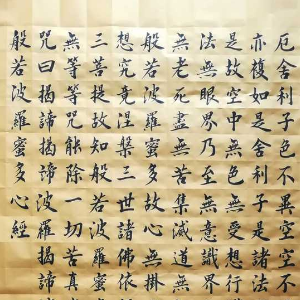 厄舍利子色不異空色不
亦複如是舍利子是諸法
是故空中無色無受想行
法無眼界乃至無意識界
無老死盡無苦集滅道無
般若波羅蜜多故心無掛
想究竟涅槃三世諸佛依
三菩提故知般若波羅蜜
無等等咒能除一切苦真
咒曰揭諦揭諦波羅揭諦
般若波羅蜜多心經